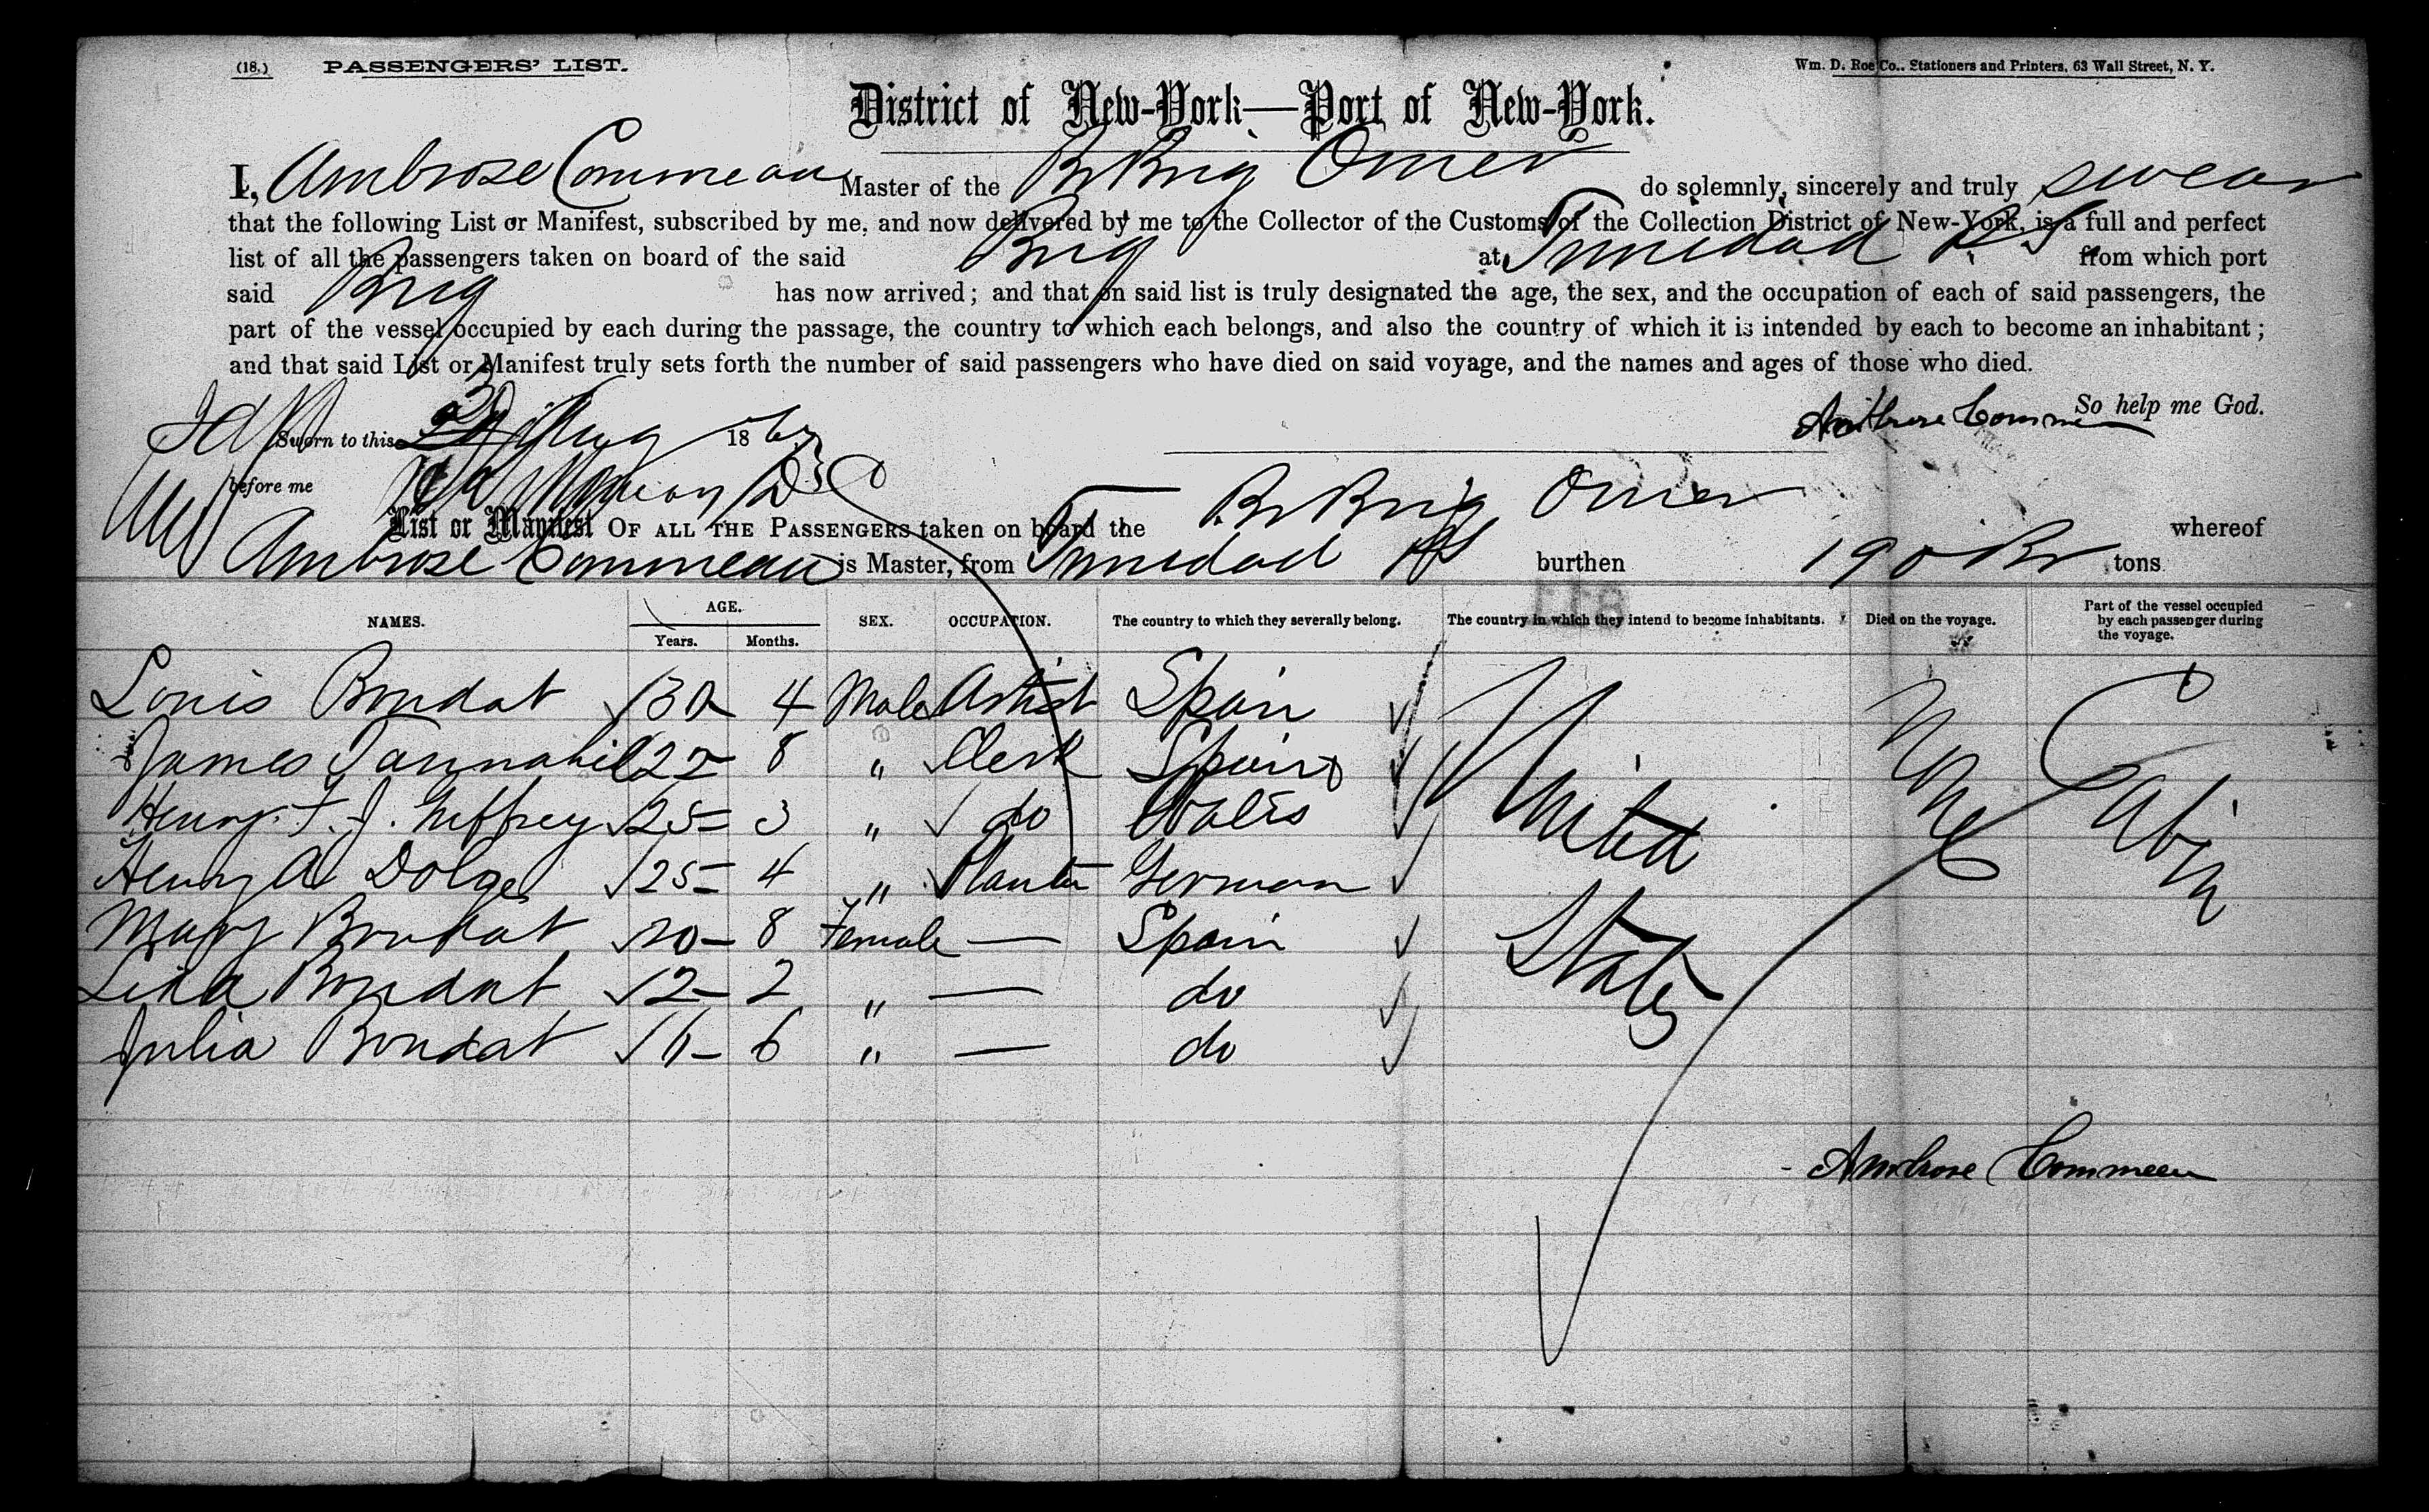 (18.) PASSENGERS' LIST. Wm. D. Roe Co.. Stationers and Printers, 63 Wall Street, N. Y.
District of New-York—Port of New-York.
I, Ambrose Commeau Master of the Br Brig Omer do solemnly, sincerely and truly swear
that the following List or Manifest, subscribed by me, and now delivered by me to the Collector of the Customs of the Collection District of New-York, is a full and perfect
list of all the passengers taken on board of the said Brig at Trinidad from which port
said Brig has now arrived; and that on said list is truly designated the age, the sex, and the occupation of each of said passengers, the
part of the vessel occupied by each during the passage, the country to which each belongs, and also the country of which it is intended by each to become an inhabitant;
and that said List or Manifest truly sets forth the number of said passengers who have died on said voyage, and the names and ages of those who died.
So help me God.
Sworn to this Aug 18 Ambrose Comme
before me
List or Manifest OF ALL THE PASSENGERS taken on board the Br Brig Omer whereof
Ambrose Commeau is Master, from Trinidad burthen 190 Br tons
NAMES. AGE. Years. Months. SEX. OCCUPATION. The country to which they severally belong. The country in which they intend to become inhabitants. Died on the voyage. Part of the vessel occupied by each passenger during the voyage.
Louis Bondat 30 4 Male Artist Spain United States None Cabin
James Tannahill 22 8 " Clerk Spain
Henry F. J. 25 3 " do Wales
Henry A Dolge 25 4 " Planter German
Mary Bondat 20 8 Female — Spain
Lina Bondat 2 2 " — do
Julia Bondat 6 " — do
Ambrose Commeau